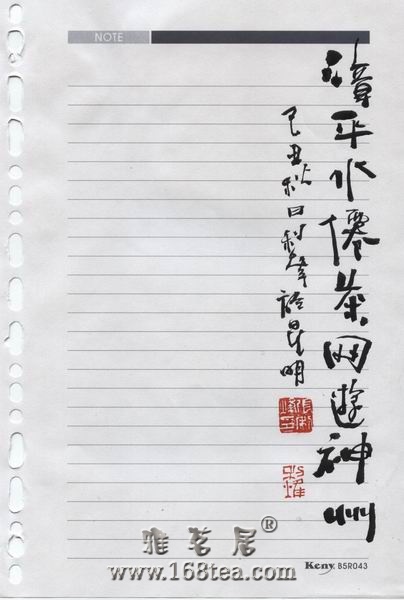 NOTE
漳平水僊茶网遊神州
己丑秋日於昆明
雅茗居®
www.168tea.com
Keny B5R043